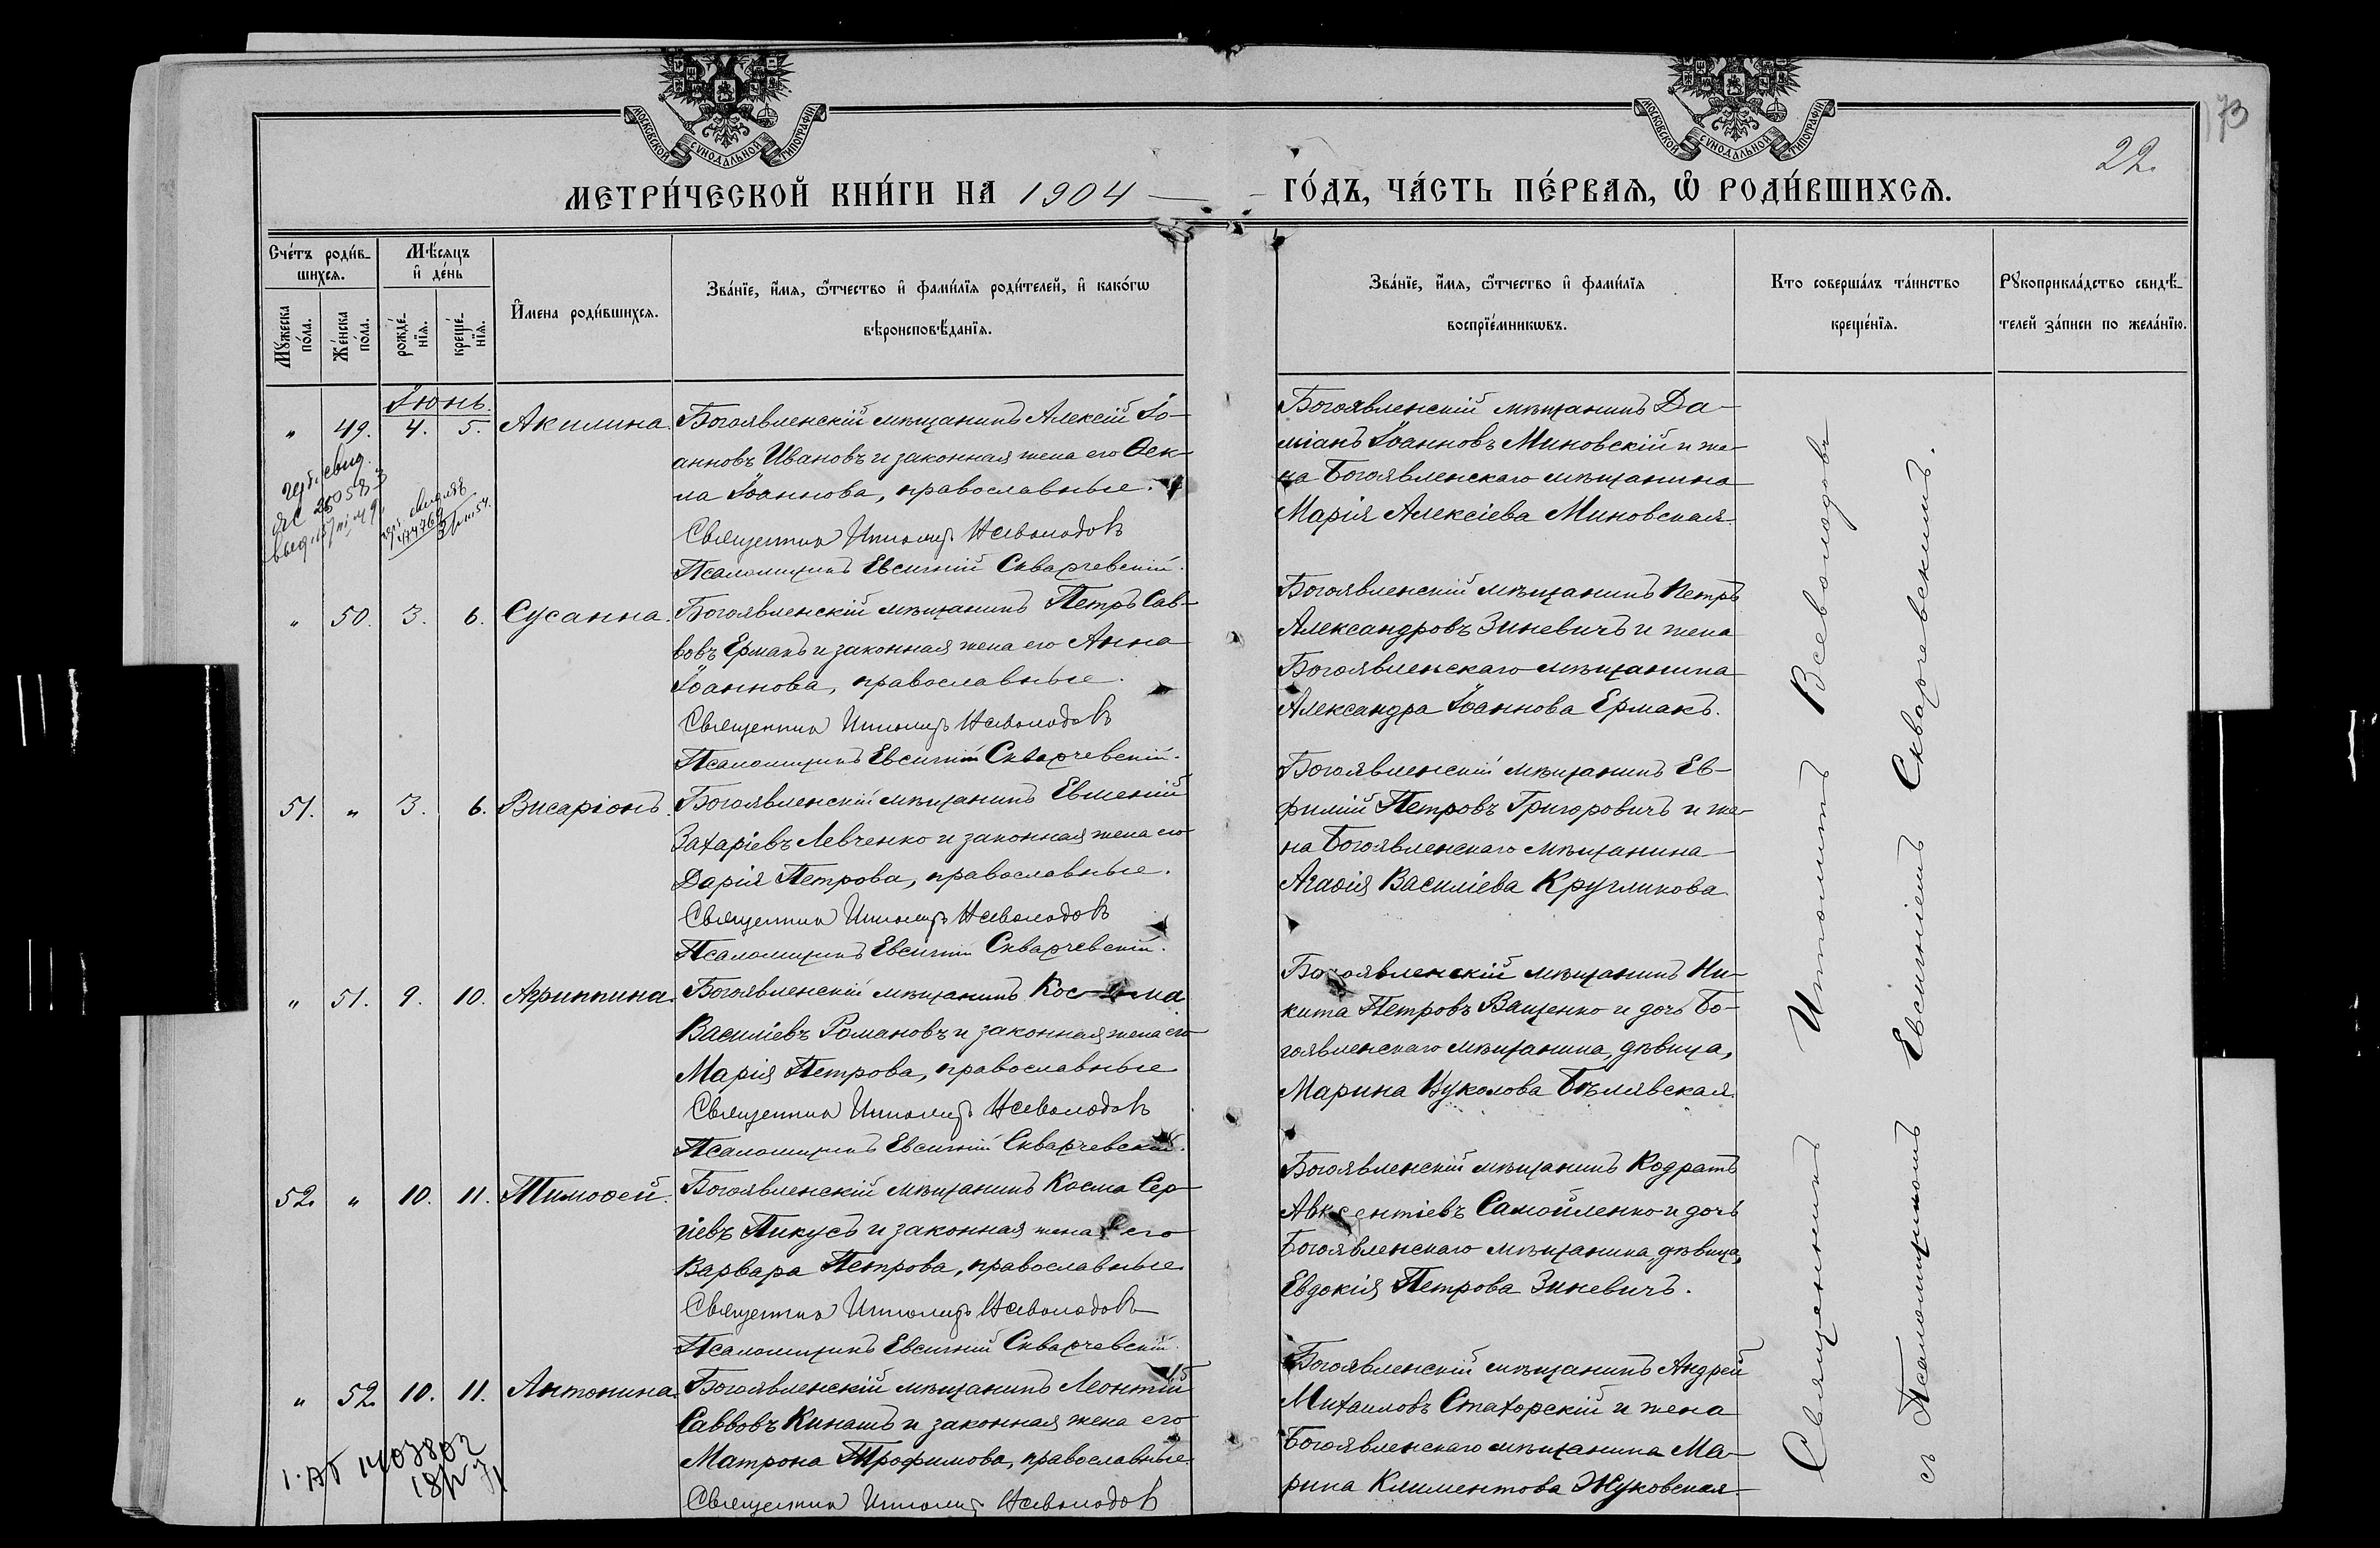 МОСКОВСКОЙ СѴНОДАЛЬНОЙ ТИПОГРАФІИ
МОСКОВСКОЙ СѴНОДАЛЬНОЙ ТИПОГРАФІИ
73
22.
МЕТРИ́ЧЕСКОЙ КНИ́ГИ НА 1904
ГО́ДЪ, ЧА́СТЬ ПЕ́РВАѦ, Ѽ РОДИ́ВШИХСѦ.
Сче́тъ роди́в-
шихсѧ.
Мꙋжеска по́ла.
Же́нска по́ла.
Мѣ́сѧцъ
и҆ де́нь
рожде́-
нїѧ.
креще́-
нїѧ.
И҆мена роди́вшихсѧ.
Зва́нїе, и҆́мѧ, ѻ҆́тчество и҆ фами́лїѧ роди́телей, и҆ како́гѡ
вѣроисповѣ́данїѧ.
Зва́нїе, и҆́мѧ, ѻ҆́тчество и҆ фами́лїѧ
воспрїе́мникѡвъ.
Кто соверша́лъ та́инство
креще́нїѧ.
Рꙋкоприкла́дство свидѣ́-
телей за́писи по жела́нїю.
Іюнь.
" 49. 4. 5. Акилина.
Богоявленскій мѣщанинъ Алексій Іо-
анновъ Ивановъ и законная жена его Ѳек-
ла Іоаннова, православные.
Священник Ипполит Всеволодовъ
Псаломщикъ Евсигній Скварчевскій.
Богоявленскій мѣщанинъ Да-
міанъ Іоанновъ Миновскій и же-
на Богоявленскаго мѣщанина
Марія Алексіева Миновская.
" 50. 3. 6. Сусанна.
Богоявленскій мѣщанинъ Петръ Сав-
вовъ Ермакъ и законная жена его Анна
Іоаннова, православные.
Священник Ипполит Всеволодовъ
Псаломщикъ Евсигній Скварчевскій.
Богоявленскій мѣщанинъ Петръ
Александровъ Зиневичъ и жена
Богоявленскаго мѣщанина
Александра Іоаннова Ермакъ.
51. " 3. 6. Висаріонъ.
Богоявленскій мѣщанинъ Евменій
Захаріевъ Левченко и законная жена его
Дарія Петрова, православные.
Священник Ипполит Всеволодовъ
Псаломщикъ Евсигній Скварчевскій.
Богоявленскій мѣщанинъ Ев-
фимій Петровъ Григоровичъ и же-
на Богоявленскаго мѣщанина
Агафія Василіева Кругликова.
" 51. 9. 10. Агриппина.
Богоявленскій мѣщанинъ Кос-ма
Василіевъ Романовъ и законная жена его
Марія Петрова, православные
Священник Ипполит Всеволодовъ
Псаломщикъ Евсигній Скварчевскій.
Богоявленскій мѣщанинъ Ни-
кита Петровъ Ващенко и дочь Бо-
гоявленскаго мѣщанина, дѣвица,
Марина Вуколова Бѣлявская.
52. " 10. 11. Тимоѳей.
Богоявленскій мѣщанинъ Косма Сер-
гіевъ Пикусъ и законная жена его
Варвара Петрова, православные.
Священник Ипполит Всеволодовъ
Псаломщикъ Евсигній Скварчевскій.
Богоявленскій мѣщанинъ Кодратъ
Авксентіевъ Самойленко и дочь
Богоявленскаго мѣщанина, дѣвица,
Евдокія Петрова Зиневичъ.
" 52. 10. 11. Антонина.
Богоявленскій мѣщанинъ Леонтій
Саввовъ Кинашъ и законная жена его
Матрона Трофимова, православные.
Священник Ипполит Всеволодовъ
Богоявленскій мѣщанинъ Андрей
Михаиловъ Стахорскій и жена
Богоявленскаго мѣщанина Ма-
рина Климентова Жуковская.
Священникъ Ипполитъ Всеволодовъ
съ Псаломщикомъ Евсигніемъ Скварчевскимъ.